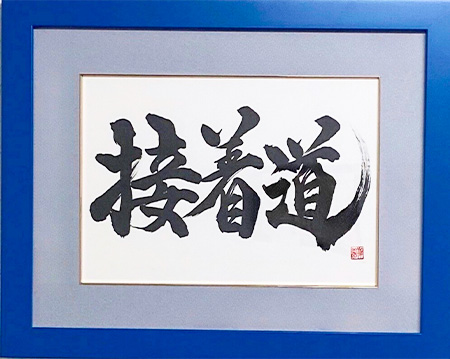 接着道